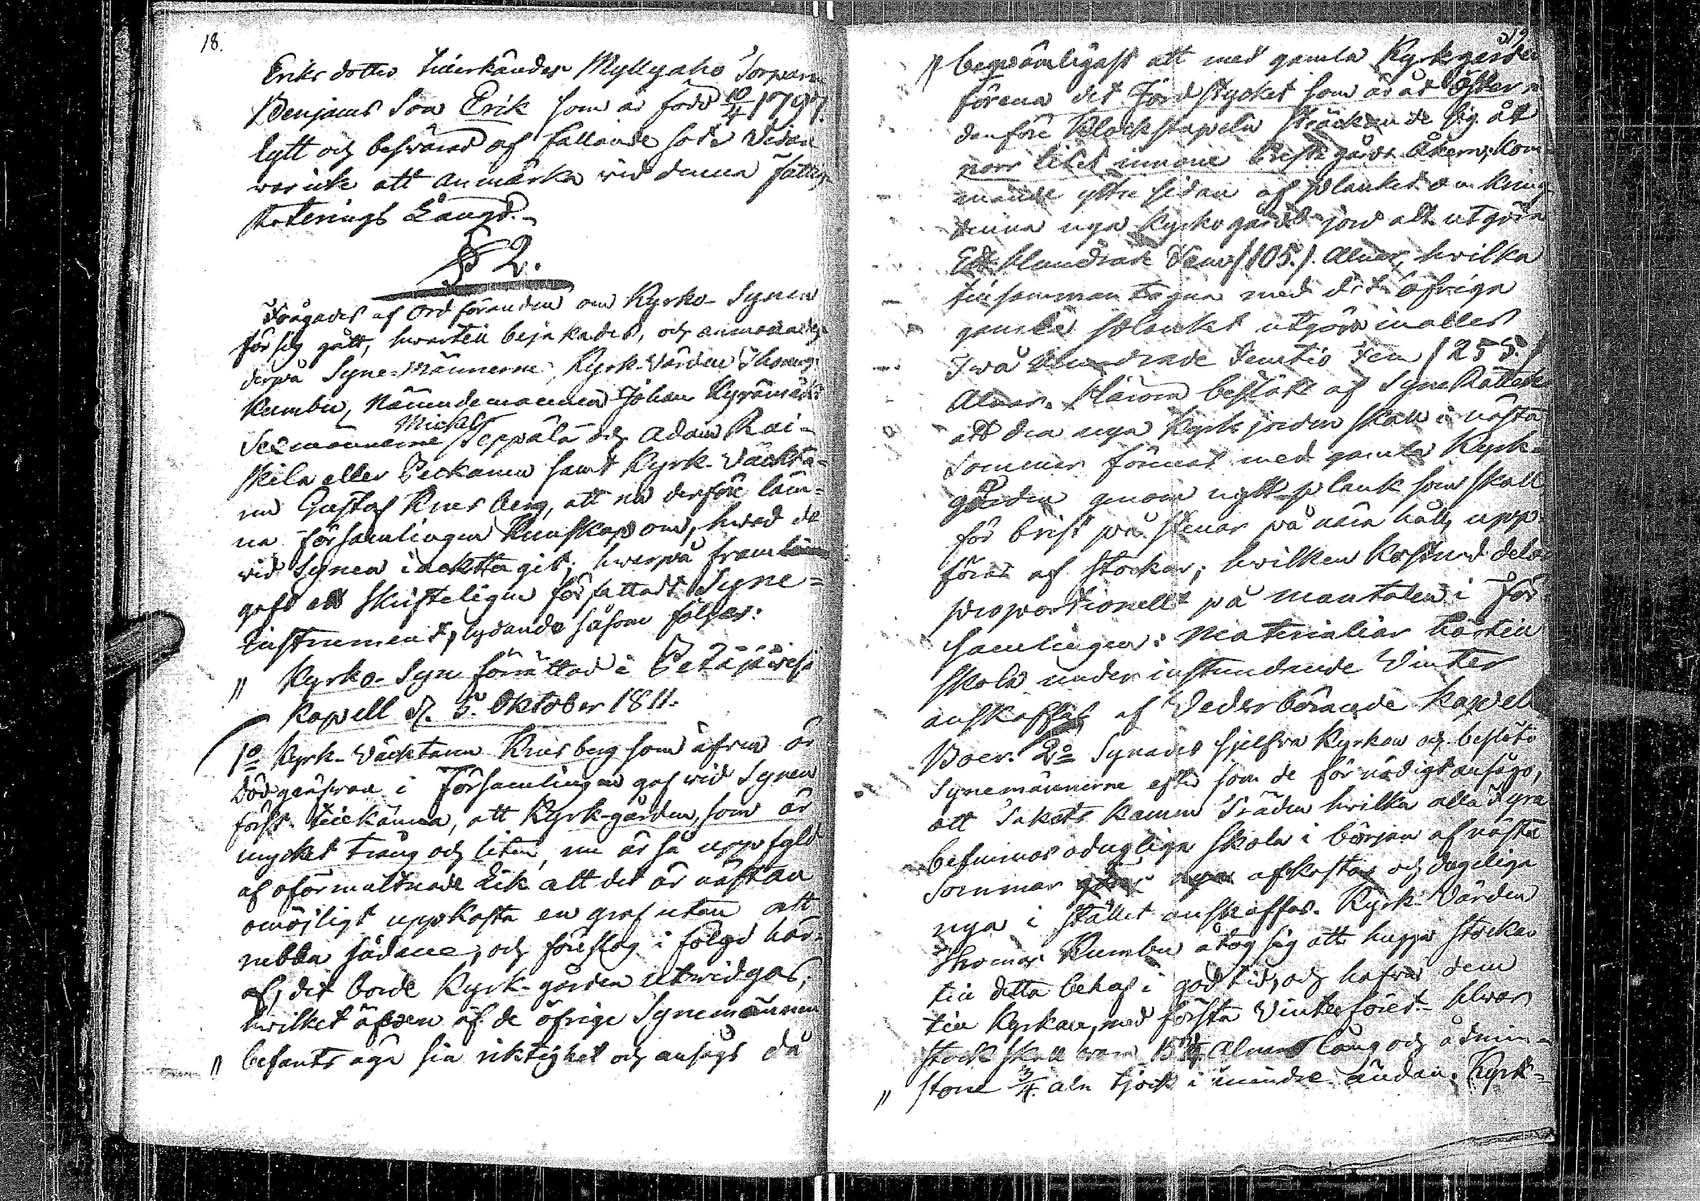 18.
Eriks dotter tillerkändes Myllyaho Torparn
Benjams Son Erik som är född 10/4 1797.
lytt och besvärad af fallande sot. Vidare
war icke att anmärka vid denna
Längd.
§ 2.
Frågades af Ordföranden om Kyrko-Synen
för sig gått, hwartill bejakades, och anmanades
derpå Syne-Männerne, Kyrk-Värden Thomas
Kumbu, Nämndemannen Johan
Sexmännerne Michel Seppälä och Adam Rai-
skila eller Peckanen samt Kyrk-Väckta-
ren Gustaf Knus berg, att nu derföre läm-
na församlingen kunskap om, hwad de
vid Synen iackttagit; hwarpå fram
gafs ett Skrifteligen författadt Syne-
Instrument, lydande såsom följer:
" Kyrko-Syn förrättad i Petäjävesi
Kapell d. 5. Oktober 1811.
1o Kyrk-Väcktaren Knusberg som äfven är
Dödgräfvare i Församlingen gaf wid Synen
först tillkänna, att Kyrk-gården, som är
mycket trång och liten, nu är så uppfyld
af oförmultnade Lik att det är nästan
omöjligt uppkasta en graf utan att
rubba sådane, och föreslog i följd här-
af, det borde Kyrk-gården utwidgas;
hwilket äfven af de öfrige Synemännen
" befants äga sin riktighet och ansågs då
19
" beqvämligast att med gamla Kyrkgården
förena det Jord stycket som är åt Öster
danföre Klockstapeln sträckande sig åt
norr litet innom Prestgårds Åkern; kom
mande yttre sidan af planket om kring
denna nya Kyrkogårds-jord att utgöra
Ett Hundrade Fem /105./ Alnar, hwilka
tillsamman tagna med det öfriga
gamla planket utgöra inalles
Två Hundrade Femtio Fem /255./
Alnar. Härom beslöts af SyneRätten
att den nya Kyrk jorden skall i nästa
Sommar förenas med gamla Kyrk-
gården genom nytt plank som skall
för brist på stenar på nära håll, upp-
föras af stockar; hwilken kostnad delas
proportionellt på mantalen i För-
samlingen: Materialier härtill
skola under instundande Vinter
anskaffas af Vederbörande Kapell
Boer. 2o Synades sjelfva Kyrkan och beslöto
Synemännerne efter som de för nödigt ansågo,
att Takets Kamm Träden hwilka alla Fyra
befunnos odugliga skola i början af nästa
Sommar afkastas och dugeliga
nya i stället anskaffas. Kyrk-Värden
Thomas Kumbu åtog sig att hugga Stockar
till detta behof i god tid, och hafva dem
till Kyrkan, med första Vinterföret. Hwar
stock skall vara 15 Alnar lång och åtmin-
" stone 3/4. aln tjock i mindre ändan. Kyrk-